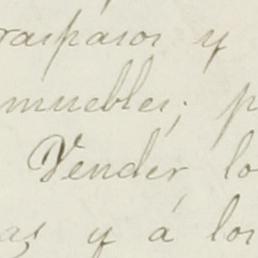 raspasos y
muebles; p
Vender lo
as y á los